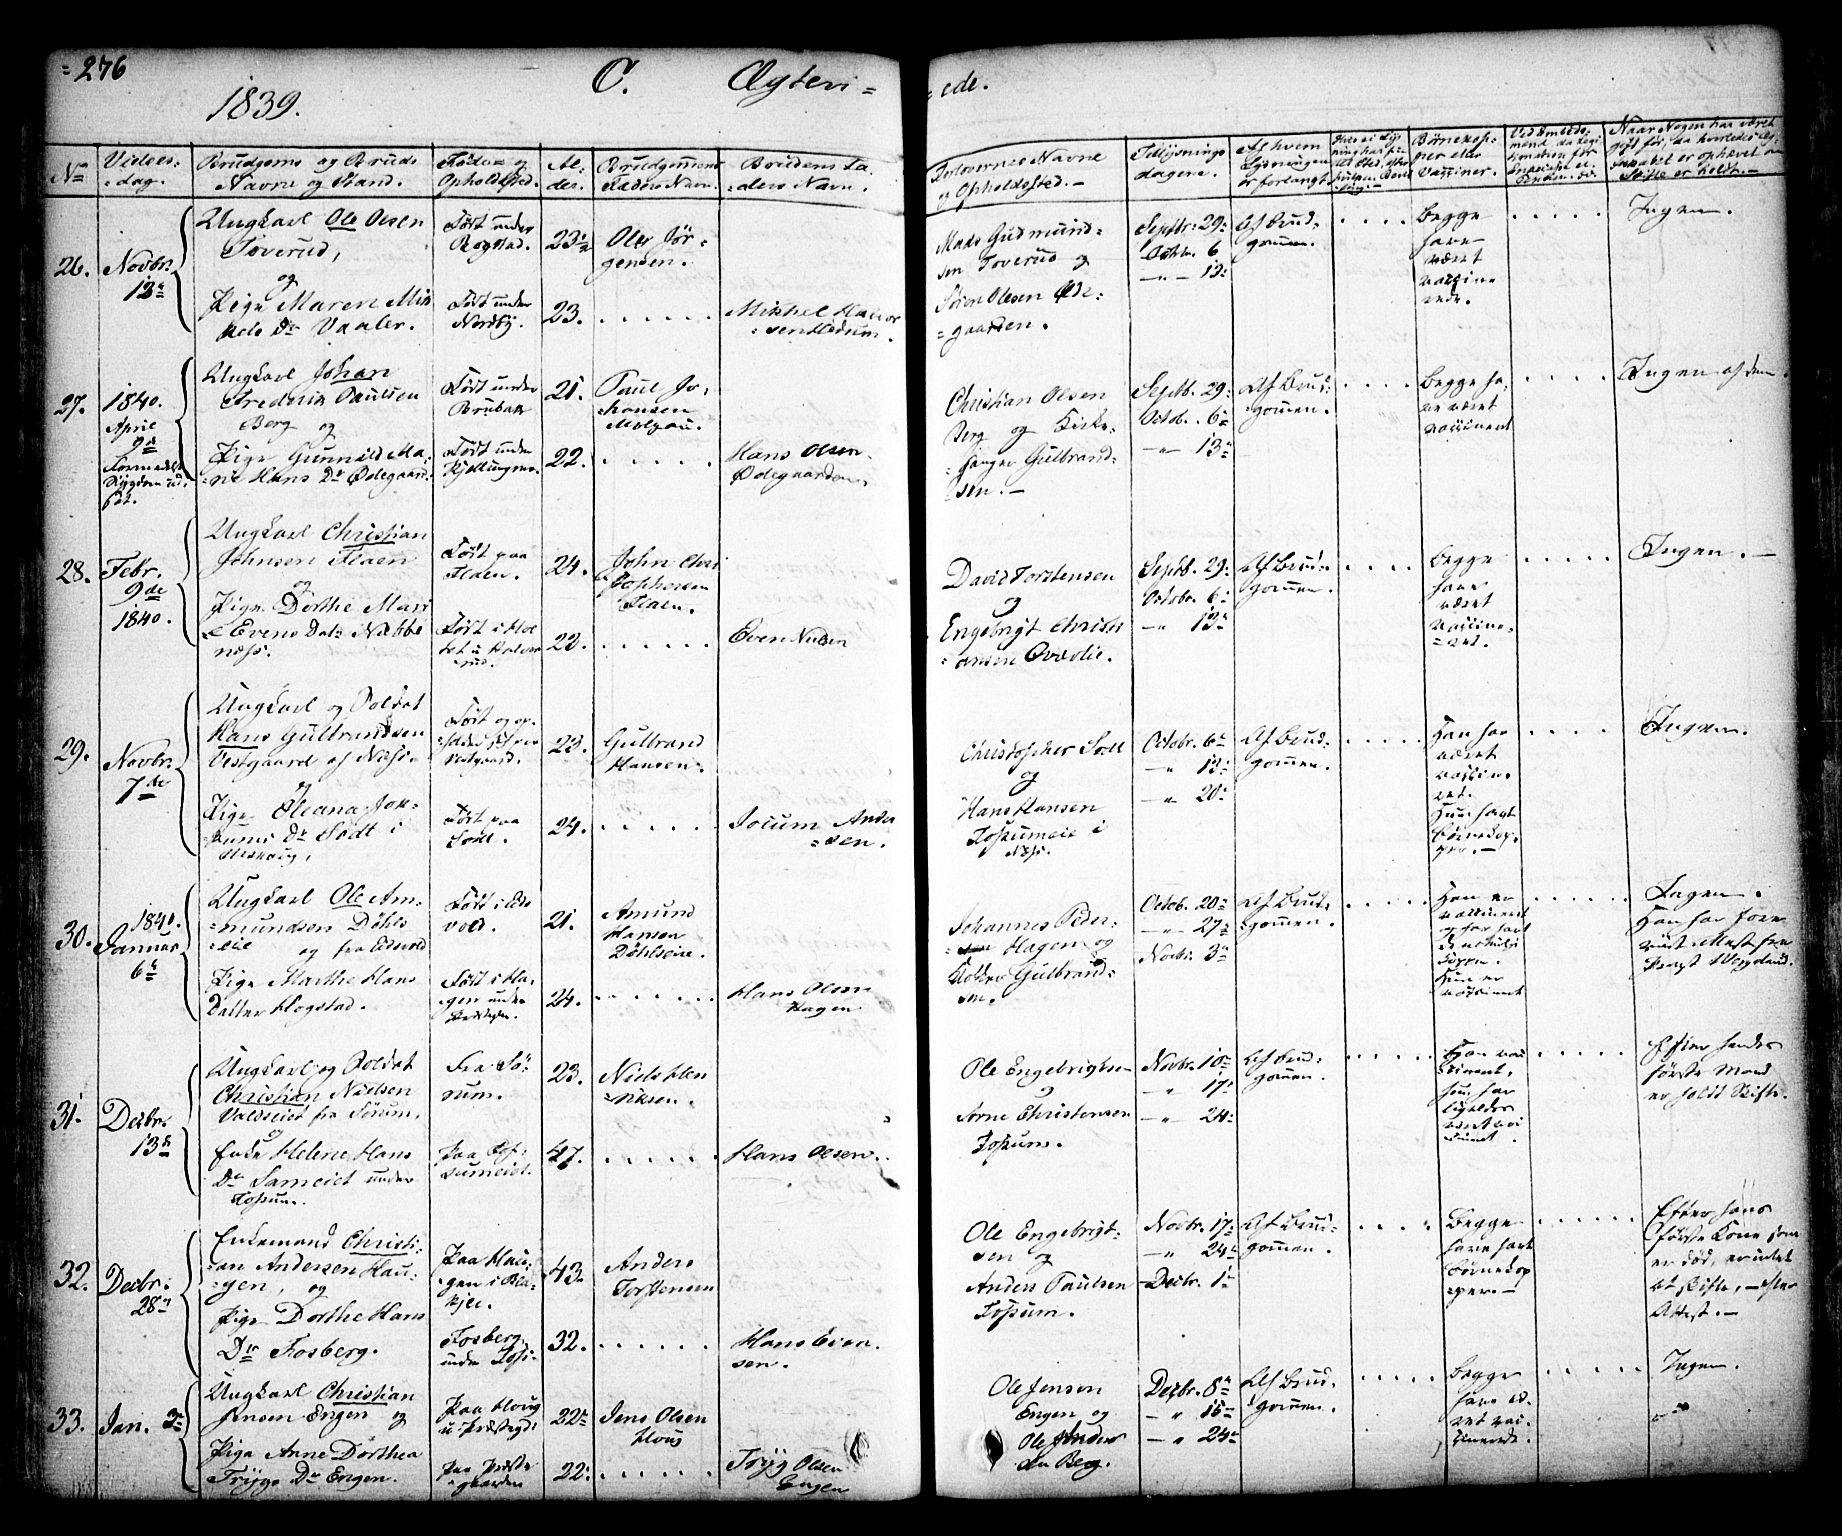 276
1839.
C. Ægtevi=
=ede.
No
Vielses-
=dag.
Brudgoms og Bruds
Navne og Stand.
Føde= og
Opholdsted.
Al-
der.
Brudgommens
Faders Navn.
Brudens Fa-
ders Navn.
Forlovernes Navne
og Opholdsted.-
Tillysnings
dagene.
Af hvem
Lysningen
er forlangt
Børnekop-
per eller
Vaccine.
26.
Novbr.
12te
Ungkarl Ole Olsen
Toverud,
og
Pige Maren Mik
kels Dr Vaaler.
Født under
Rogstad.
Født under
Nordby.
23
23.
Ole Jør-
gensen.
Mikkel Halvor
=sen Hedum.
Mads Gudmund=
sen Toverud og
Søren Olesen Øde=
=gaarden.
Septbr. 29.
Octbr. 6
-"- 13
Af Brud-
gommen.
Begge
have
været
vaccine
rede.
Ingen.
27.
1840.
April
9de
Ungkarl Johan
Frederik Paulsen
Berg og
Pige Gunnild Ma=
=rie Hans Dr Ødegaard
Født under
Brubak
Født under
Kjellingmo.
21.
22.
Paul Jo-
hansen
Hans Olsen
Ødegaarden
Christian Olsen
Berg og Kirke=
=sanger Gulbrand=
sen.-
Septb. 29.
Octob. 6
-"- 13
Af Brud-
gommen.
Begge ha-
ve været
vaccineret
Ingen af dem.
28.
Febr.
9de
1840.
Ungkarl Christian
Johnsen Flaen
og
Pige Dorthe Mari
Evens Datr Næbbe
næss.
Født paa
Flaen.
24.
23.
John Chri
stophersen
Flaen.
Even Nielsen
David Torstensen
og
Engebrigt Christi
=ansen
Septb. 29.
Octobr. 6
-"- 13
Af Brud-
gommen.
Begge
have
været
vaccine=
=ret.
Ingen.-
29.
Novbr.
7de
Ungkarl og Soldat
Hans Gulbrandsen
Vestgaard af Næss.
og
Pige Oleana Jo-
kums Dr Sødt i
Født og op-
Født paa
Sødt.
23.
24.
Gulbrand
Hansen.
Jocum Ander
=sen.
Christopher Sødt
og
Hans Hansen
Fossumeie i
Næss.
Octobr. 6
-"- 13
-"- 20
Af Brud-
gommen.
Han har
været
vaccine-
ret.
Hun havt
Børnekop-
per.-
Ingen.
30.
1840.
Januar
6te
Ungkarl Ole Am=
=mundsen Døhls
eie og fra Edsvold
Pige Marthe Hans
Datter Hogstad.
Født i Eds
vold.
Født i Ha-
gen under
21.
24.
Amund
Hansen
Døhlseie.
Hans Olsen
Hagen
Johannes Peder=
sen Hagen og
Gulbrand=
sen.
Octob. 20
-"- 27
Novbr. 3
Af Brud-
gommen.
Han er
vaccineret
og har havt
Hun er
vaccineret
Ingen.
Han har fore
viist Attest fra
31.
Decbr.
13de
Ungkarl og Soldat
Christian Nielsen
Valdseiet fra Sørum.
og
Enke Helene Hans
Dr Sameiet under
Fossum.
Fra Sø
rum.
Paa Fos-
sumeiet.
23.
47.
Niels Hen
=riksen.
Hans Olsen.
Ole Engebrigtsen
og
Arne Christensen
Fossum.
Novbr. 10
-"- 17
-"- 24
Af Brud-
gommen.
Efter hendes
første Mand
er holdt Skifte.
32.
Decbr.
28
Enkemand Christi=
=an Andersen Hau=
=gen, og
Pige Dorthe Hans
Dr Fosberg.
Paa Hau=
=gen i Bla=
kjer.
Fosberg
under
43.
32.
Anders
Torstensen
Hans Even
sen.
Ole Engebrigt=
sen og
Anders Paulsen
Fossum.
Novbr. 17
-"- 24
Decbr. 1
Af Brud-
gommen.
Begge
have havt
Børnekop
per.-
Efter hans
første Kone som
er død, er intet
Skifte, - efter
Attest.-
33.
Jan. 3
Ungkarl Christian
Jensen Engen og
Pige Anne Dorthea
Trygs Dr Engen.
Paa Houg
Paa Præste
=gaarden
22
22
Jens Olsen
Houg
Tryg Olsen
Engen
Ole Jensen
Engen og
Ole Ander
sen Berg.
Decbr. 8
-"- 15
-"- 24
Af Brud-
gommen.
Begge
have væ-
ret vac-
cinerede.
Ingen.